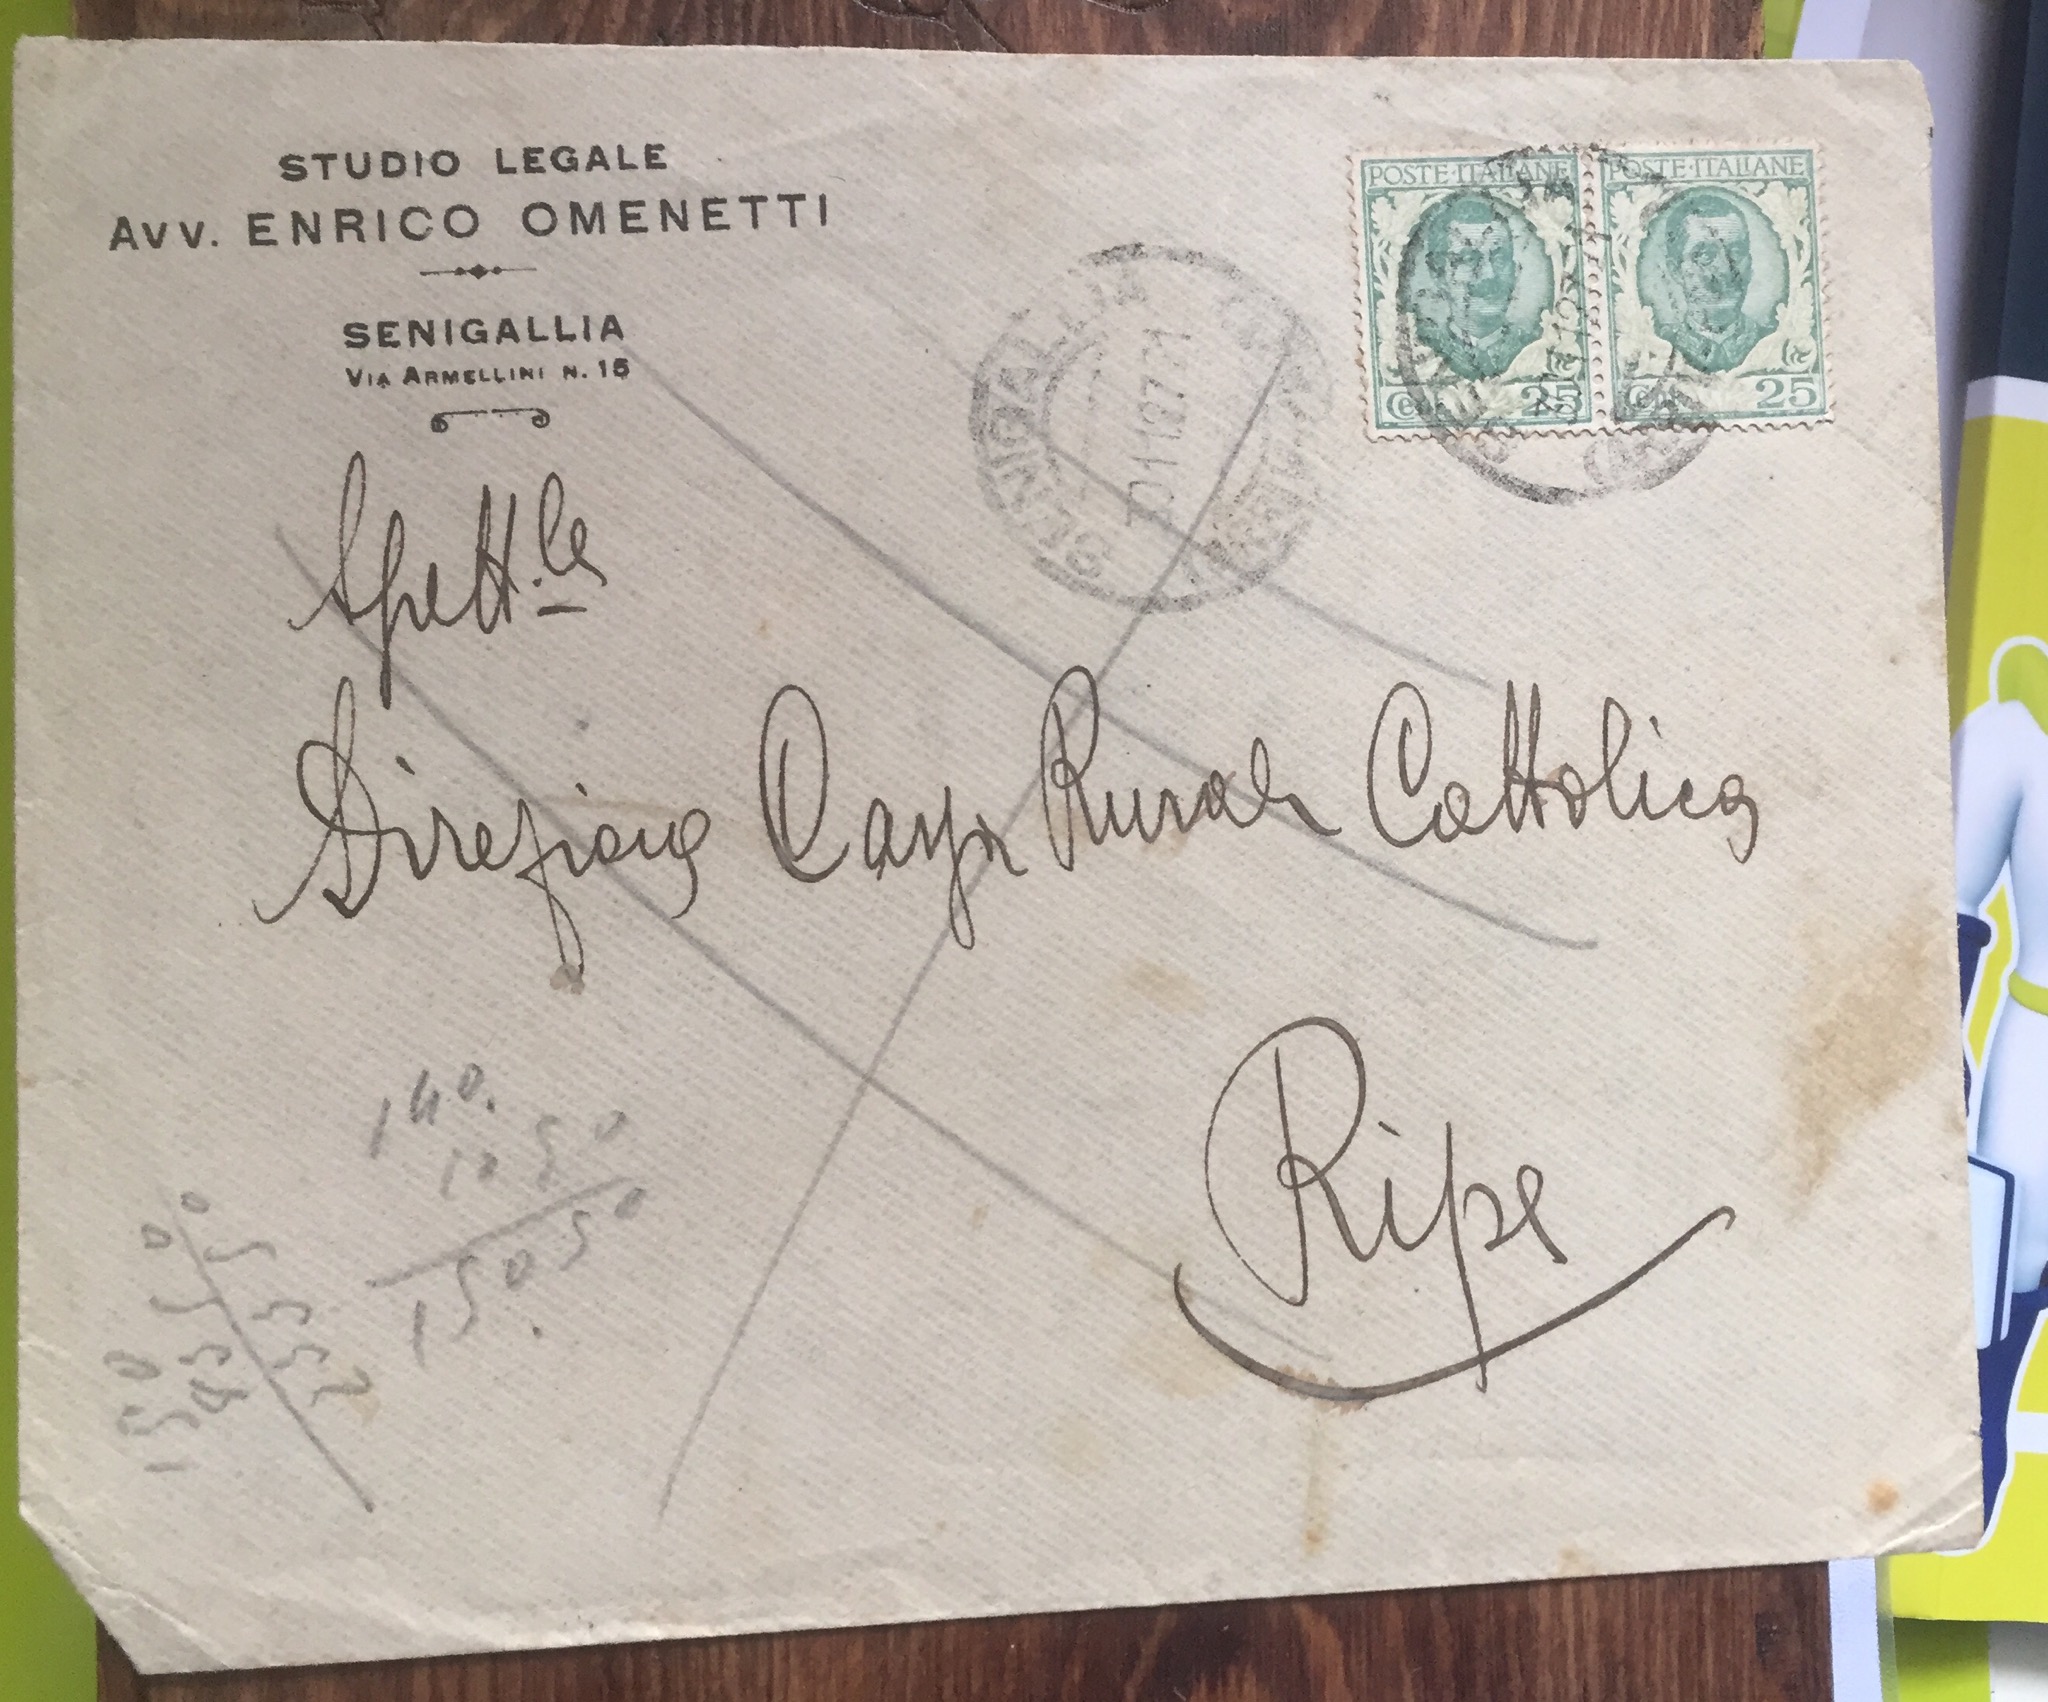 STUDIO LEGALE
AVV. ENRICO OMENETTI
SENIGALLIA
VIA ARMELLINI N. 15
POSTE·ITALIANE
POSTE·ITALIANE
25
25
SENIGALLIA
Spett.le
Direzione Cassa Rurale Cattolica
Ripe
140.
1050
15050